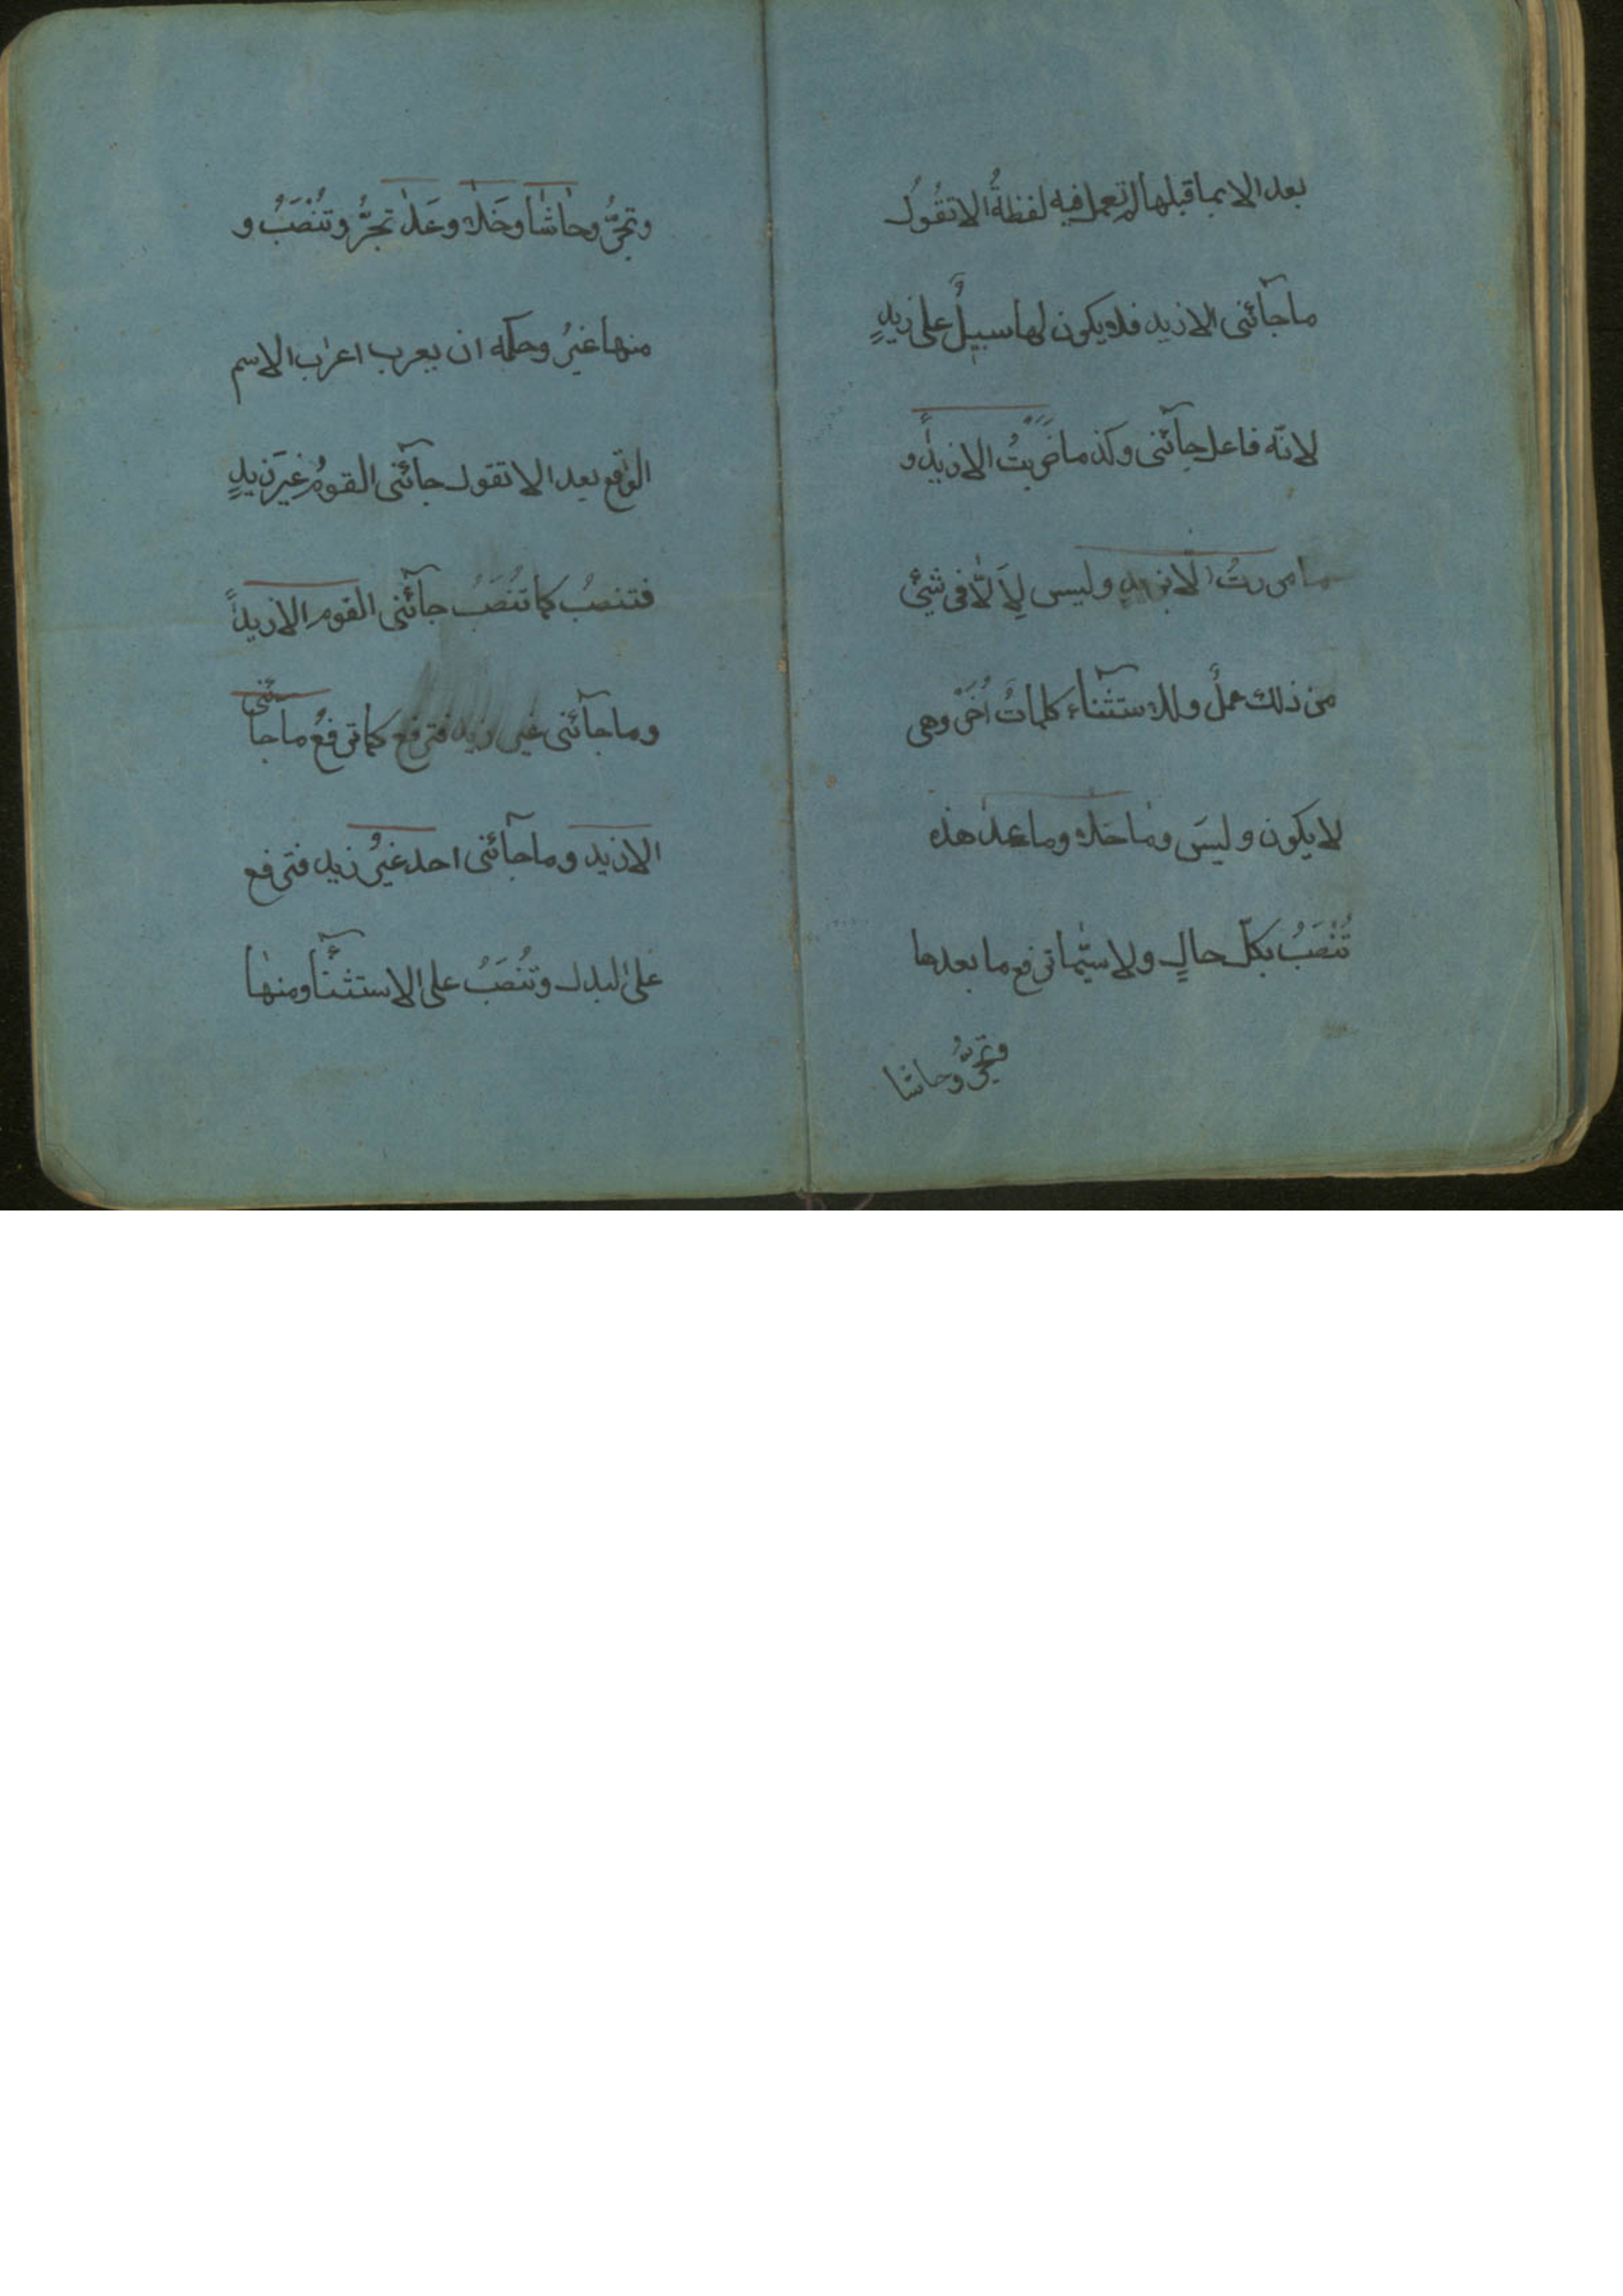 بعد الا بما قبلها لم تعمل فيه لفظةُ الا تقُولُ
ما جآئنى الا زيد فلا يكون لها سبيلٌ على زيدٍ
لانّه فاعل جآئنى وكذ ما ضَرَبْتُ الا زيداً و
ما مررتُ الا بزيدٍ وليس لِاَلّا فى شئٍ
من ذلك عملٌ وللاستثنآء كلماتٌ اُخَرْ وهى
لا يكون وليسَ وما خلا وما عدا هذه
تَنْصَبُ بكلّ حالٍ ولا سيّما ترفع ما بعدها
وتجرُّ وحاشا
وتجرُّ وحاشا وخَلا وعَدا تجرُّ وتَنْصَبُ و
منها غيرُ وحكمه ان يعرب اعراب الاسم
الواقع بعد الا تقول جآئنى القومُ غيرَ زيدٍ
فتنصبُ كما تَنْصَبُ جآئنى القوم الا زيداً
وما جآئنى غير زيد فترفع كما ترفعُ ما جائنى
الا زيد وما جآئنى احد غيرُ زيد فترفع
على البدل وتَنْصَبُ على الاستثنآء ومنها